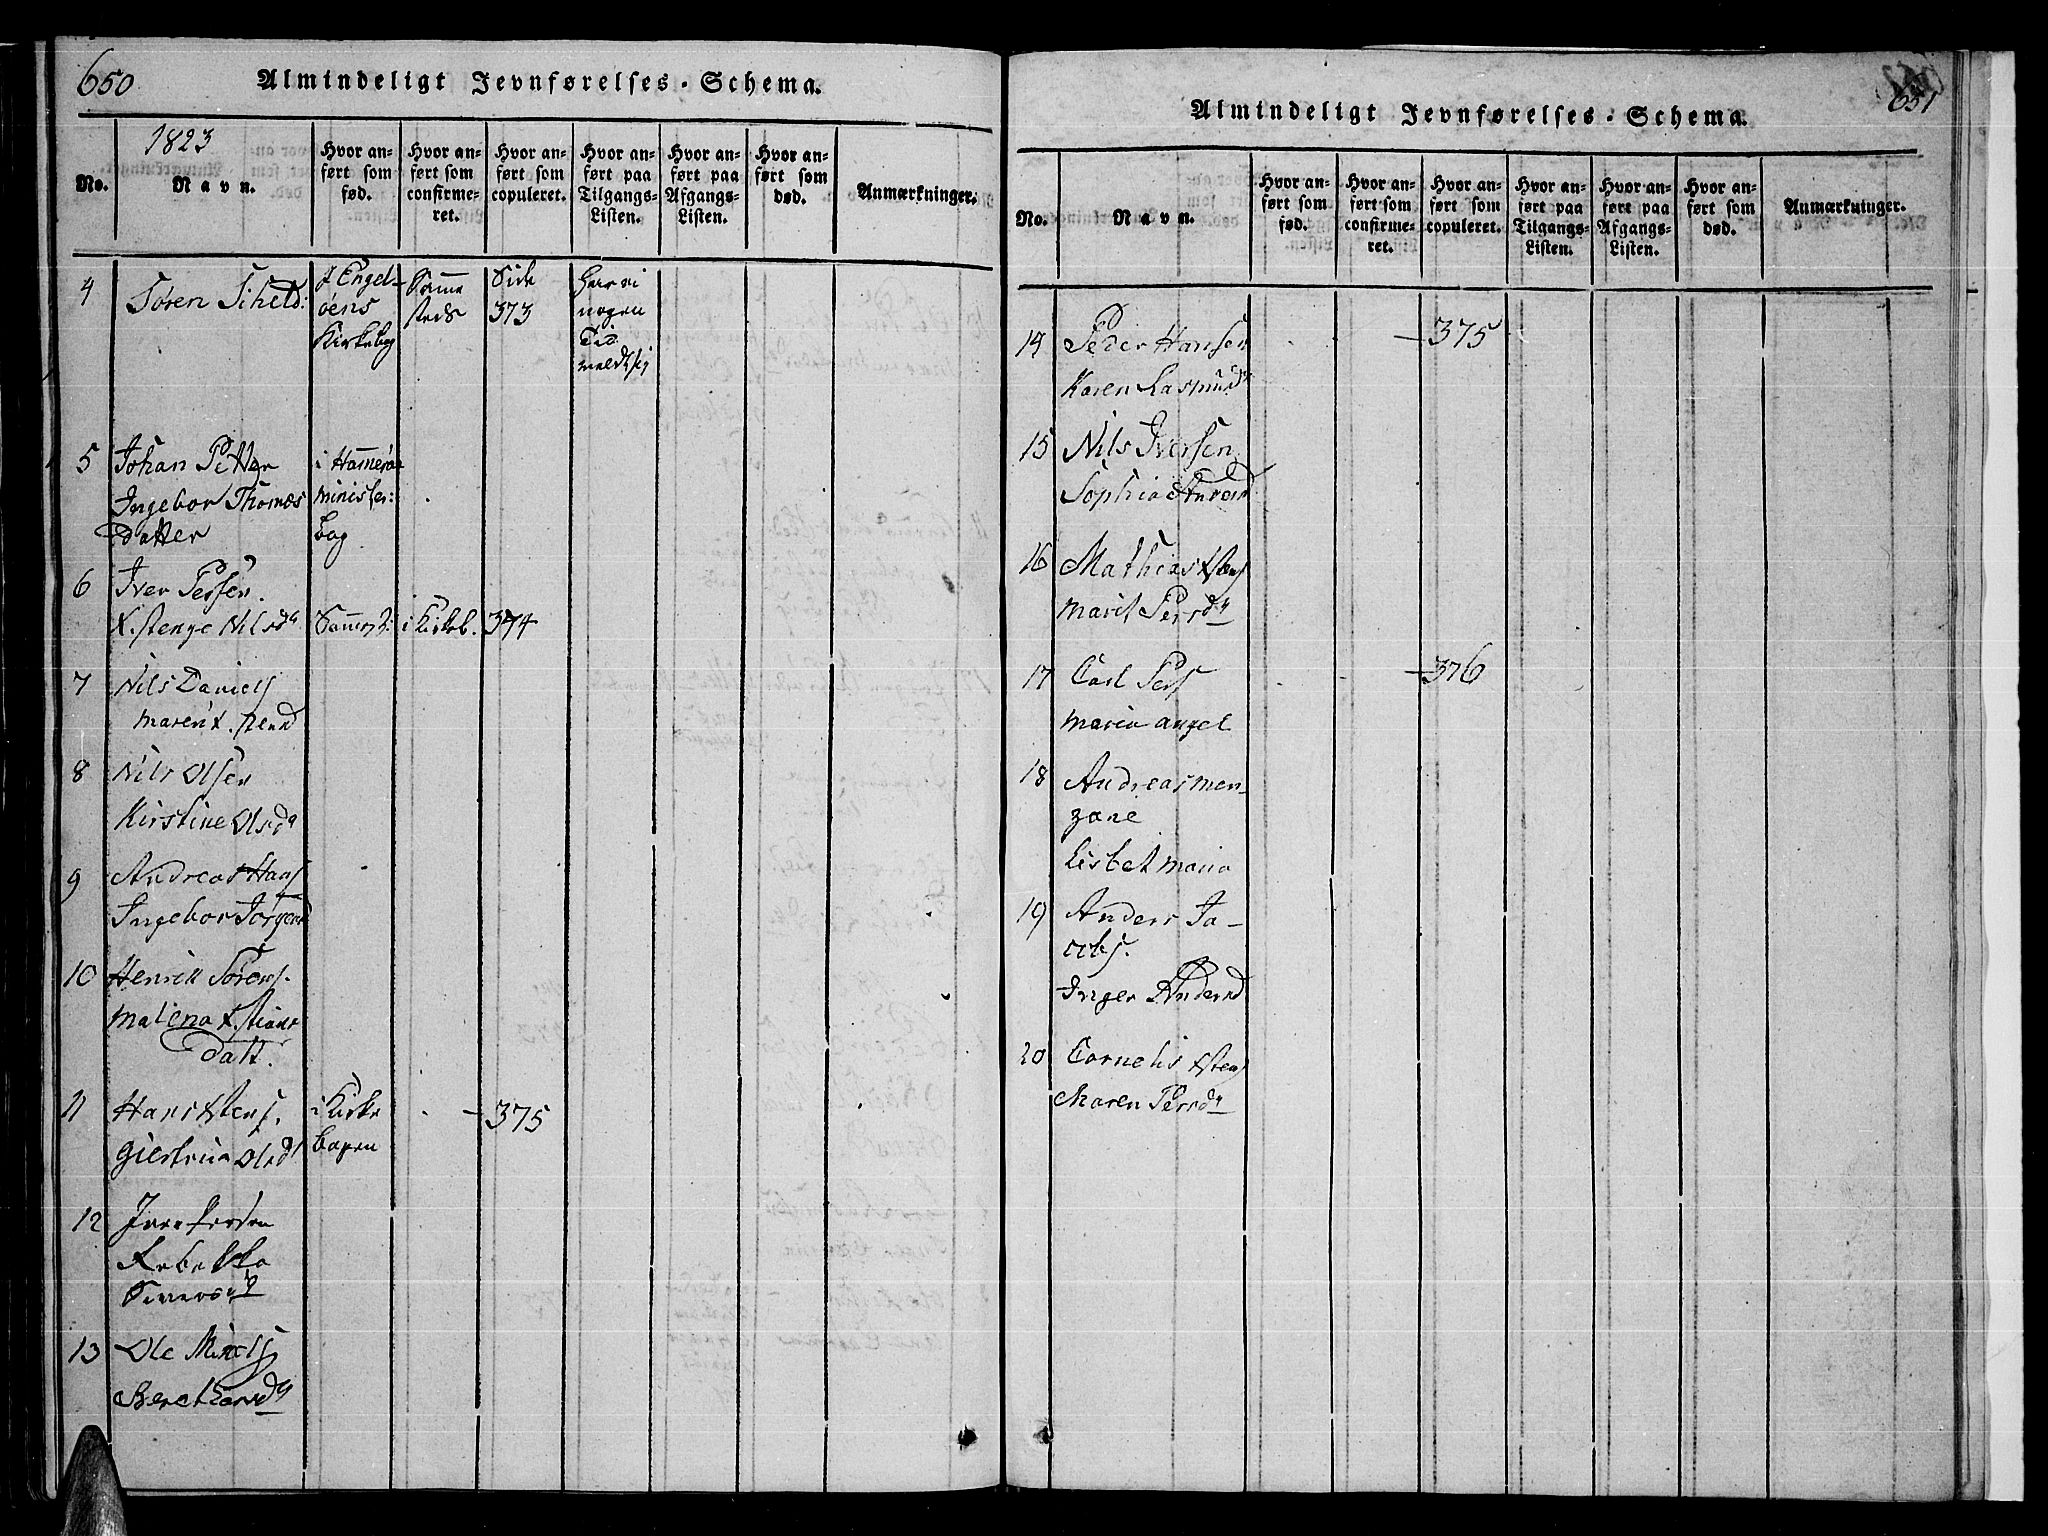 650
Almindeligt Jevnførelses-Schema.
1823
No.
Navn.
Hvor an-
ført som
fød.
Hvor an-
ført som
confirme-
ret.
Hvor an-
ført som
copuleret.
Hvor an-
ført paa
Tilgangs-
Listen.
Hvor an-
ført paa
Afgangs-
Listen.
Hvor an-
ført som
død.
Anmærkninger.
4
Søren Scheld:
I Engel-
øens
Kirkebog
Samme
steds
Side
373
nogen
Tid
meldt sig
5
Johan Petter
Ingebor Thomas
Datter
i Hamerøe
Minister:
bog
6
Iver Persen.
Xstenge Nilsdr
i Kirkeb.
374
7
Nils Daniels
Maren Xstend
8
Nils Olsen
Kirstine Olsdr
9
Andreas Hans
Ingebor Jørgend
10
Henrik Sørens.
Malena Xstians
Datt.
11
Hans Xstens.
Olsdr
i Kirke
bogen
- 375
12
Rebekka
13
Ole
651
Almindeligt Jevnførelses-Schema.
No.
Navn.
Hvor an-
ført som
fød.
Hvor an-
ført som
confirme-
ret.
Hvor an-
ført som
copuleret.
Hvor an-
ført paa
Tilgangs-
Listen.
Hvor an-
ført paa
Afgangs-
Listen.
Hvor an-
ført som
død.
Anmærkninger.
14
Peder Hansen
Karen Rasmusdr
- 375
15
Nils Iversen
Sophia Andersd
16
Mathias Xstens
Marit Persdr
17
Carl Pers
Maria Angel
- 376
18
Andreas Men-
zone
Lisbet Maria
19
Anders Ja-
cobs.
Inger Andersd
20
Cornelis Xstens
Maren Persdr